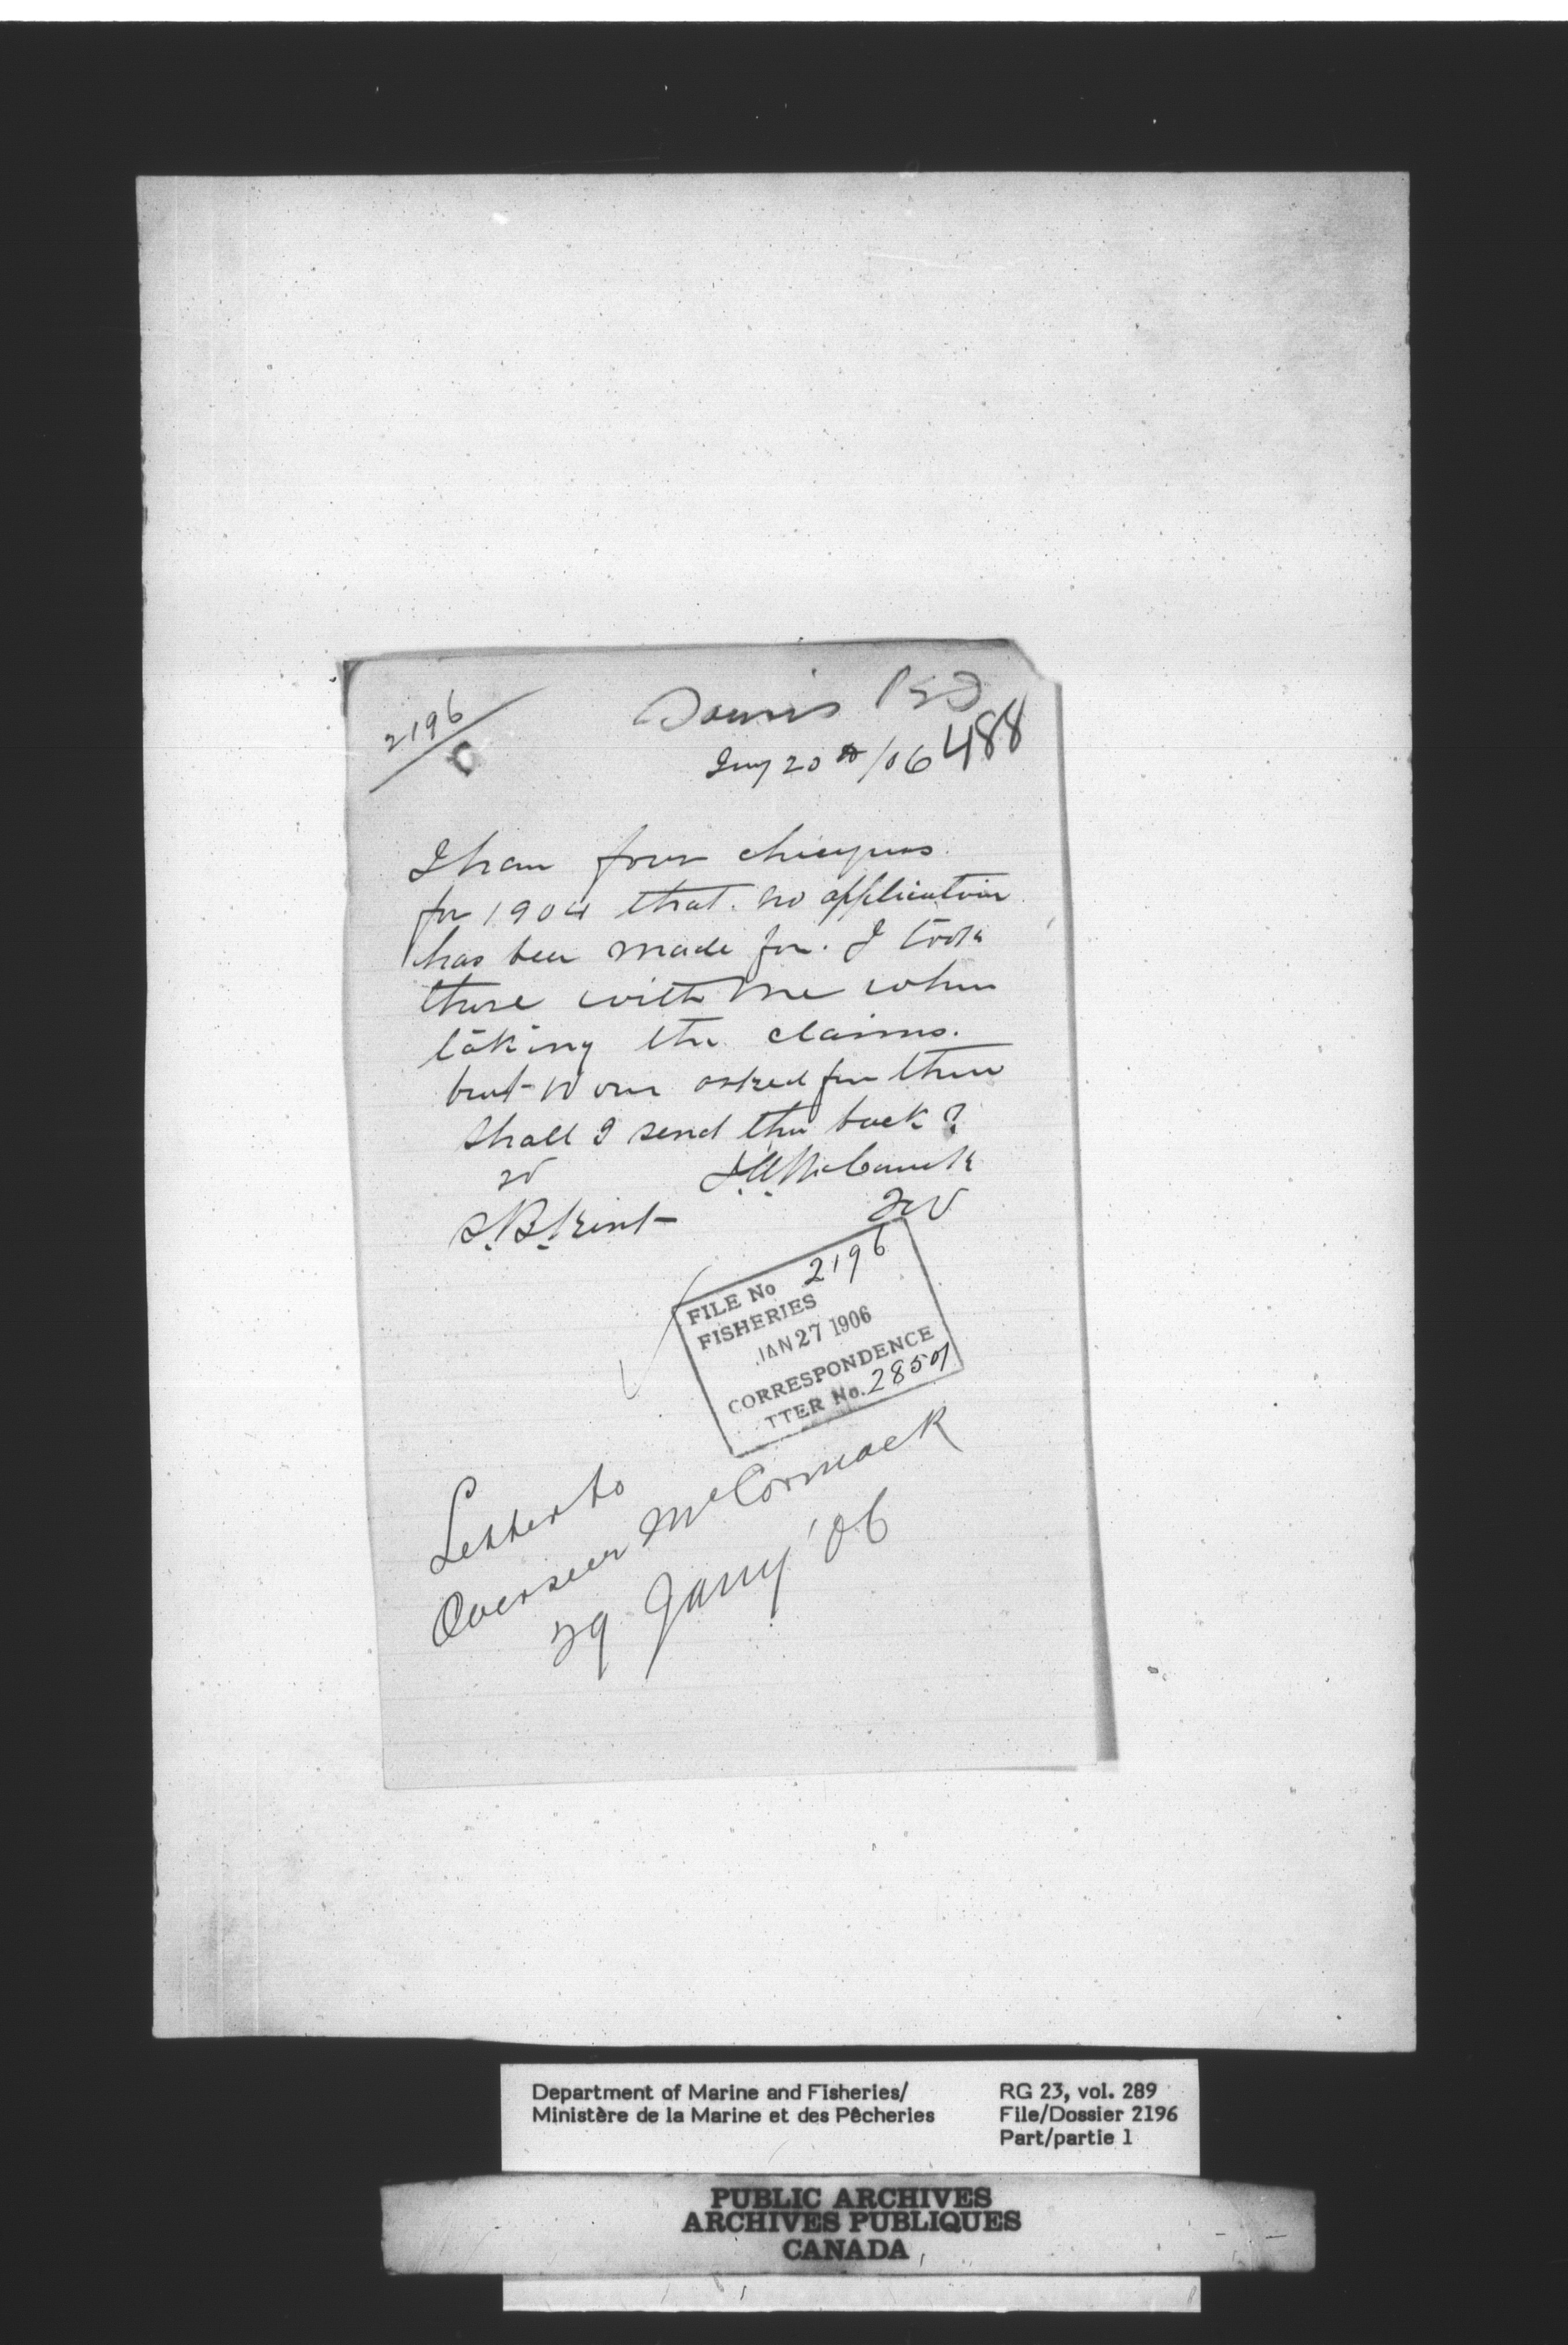 2196
Souris PEI
488
Jny 20th/06
I have four cheques
for 1904 that no application
has been made for. I took
these with me when
taking the claims.
but No one asked for them
Shall I send them back?
J.A. McCormack
S.B. Kent
FILE No 2196
FISHERIES
JAN 27 1906
CORRESPONDENCE
TTER No. 28501
Letter to
Overseer McCormack
29 Jany '06
Department of Marine and Fisheries/
Ministère de la Marine et des Pêcheries
RG 23, vol. 289
File/Dossier 2196
Part/partie 1
PUBLIC ARCHIVES
ARCHIVES PUBLIQUES
CANADA